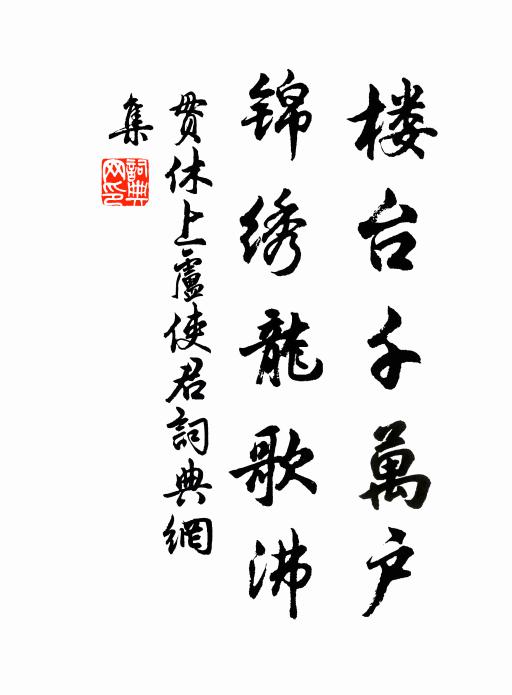 楼台千萬户
锦绣龍歌沸
貫休上盧使君詞典網
集
詞典
网印